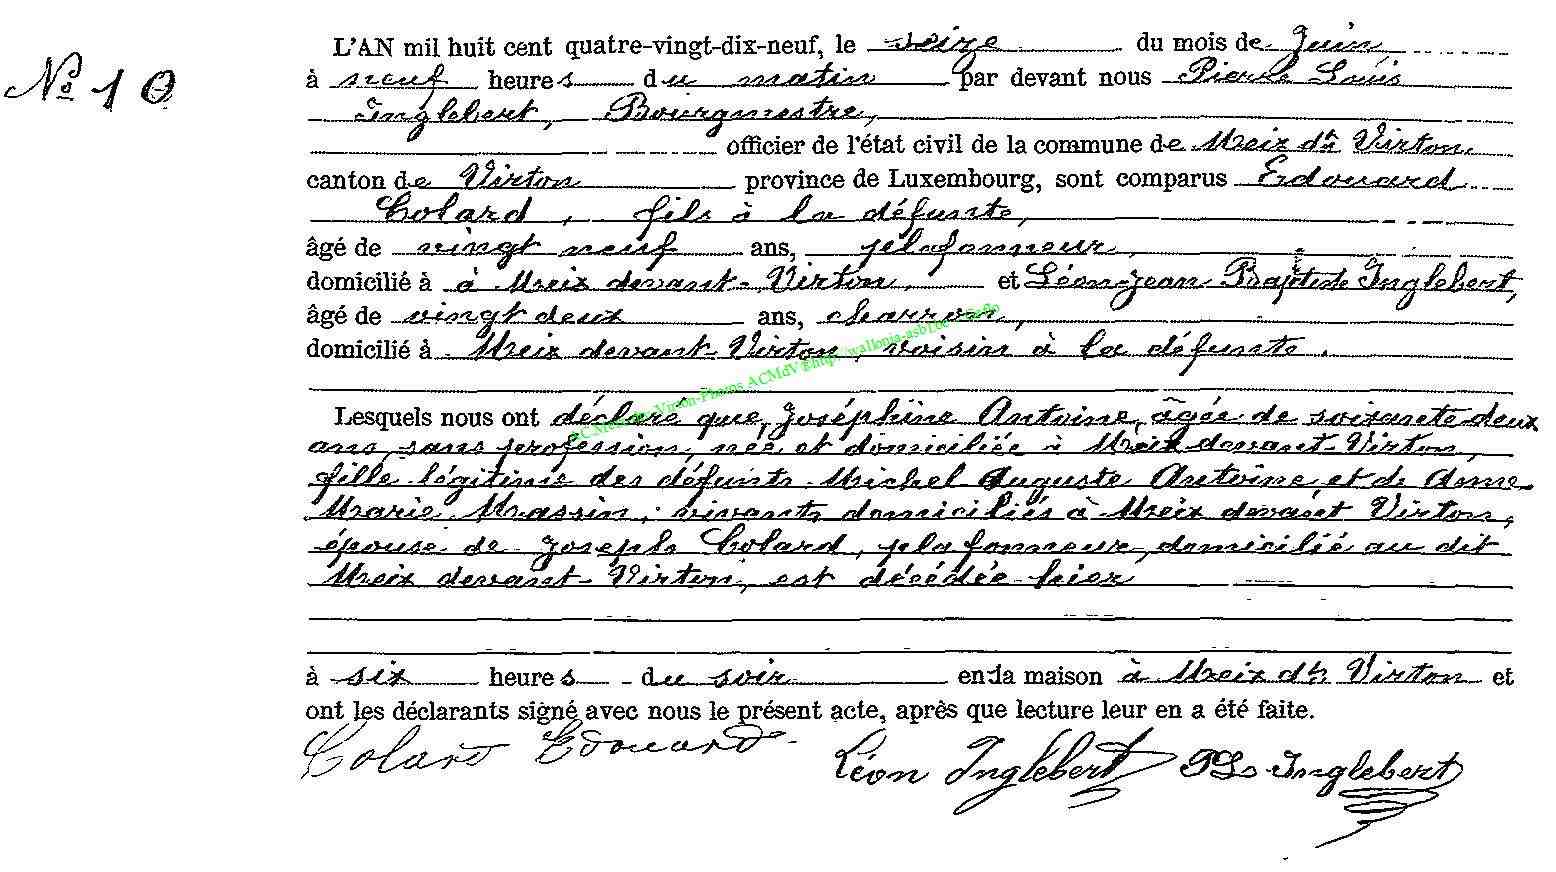 L'AN mil huit cent quatre-vingt-dix-neuf, le seize du mois de Juin
N° 10
à neuf heures du matin par devant nous Pierre Louis
Inglebert, Bourgmestre,
officier de l'état civil de la commune de Meix dt Virton
canton de Virton province de Luxembourg, sont comparus Edouard
Colard, fils à la défunte,
âgé de vingt neuf ans, plafonneur,
domicilié à à Meix devant-Virton, et Léon-Jean Baptiste Inglebert,
âgé de vingt deux ans, charron,
domicilié à Meix devant-Virton, voisin à la défunte.
Lesquels nous ont déclaré que, Joséphine Antoine, âgée de soixante deux
ans, sans profession, née et domiciliée à Meix devant-Virton,
fille légitime des défunts Michel Auguste Antoine et de dame
Marie Massin, vivants domiciliés à Meix devant Virton,
épouse de Joseph Colard, plafonneur, domicilié au dit
Meix devant-Virton, est décédée hier
à six heures du soir en la maison à Meix dt Virton et
ont les déclarants signé avec nous le présent acte, après que lecture leur en a été faite.
Colard Edouard Léon Inglebert PL Inglebert